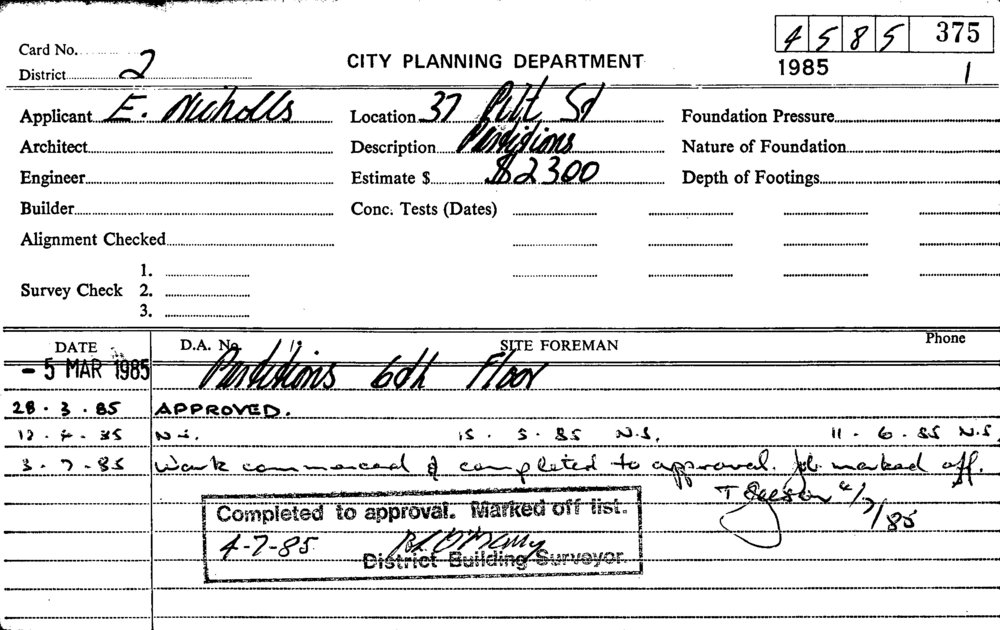 4585 375
Card No.
CITY PLANNING DEPARTMENT
1985 1
District 2
Applicant E. Nicholls Location 37 Pitt St Foundation Pressure
Architect Description Partitions Nature of Foundation
Engineer Estimate $ $2300 Depth of Footings
Builder Conc. Tests (Dates)
Alignment Checked
1.
Survey Check 2.
3.
DATE D.A. No. SITE FOREMAN Phone
- 5 MAR 1985 Partitions 6th Floor
28 . 3 . 85 APPROVED.
12 . 4 . 85 N.S. 15 . 5 . 85 N.S. 11 . 6 . 85 N.S.
3 . 7 . 85 Work commenced & completed to approval. Job marked off.
4/7/85
Completed to approval. Marked off list.
4-7-85
District Building Surveyor.